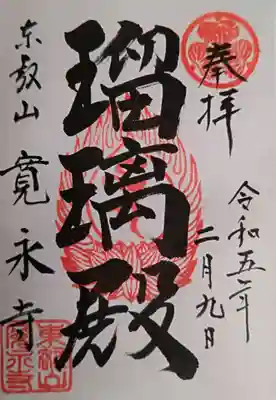 奉拝
令和五年
二月九日
瑠璃殿
東叡山
寛永寺
東叡山
寛永寺